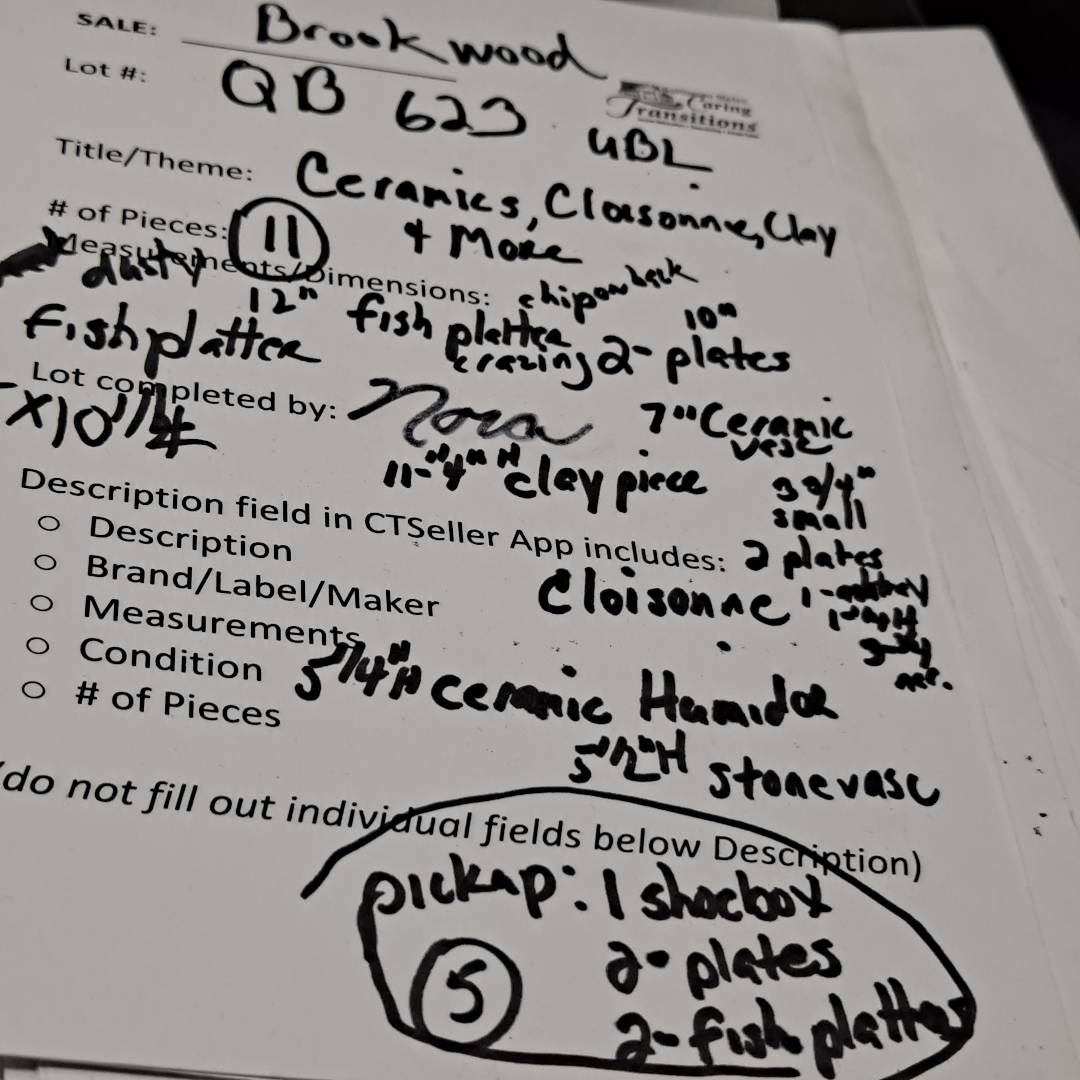 SALE: Brookwood
Lot #: QB 623 UBL
Caring
Transitions
Title/Theme: Ceramics, Cloisonne, Clay
# of Pieces: 11 + More
Measurements/Dimensions: chip on back
dusty 12" fish platter 10"
Fish platter crazing 2- plates
Lot completed by: Nora 7" Ceramic
x10 1/4 vase
11-"4" H clay piece 3 3/4"
small
Description field in CTSeller App includes: 2 plates
Description Cloisonne
Brand/Label/Maker
Measurements
Condition 5 1/4"H ceramic Humidor
# of Pieces
5 1/2"H stone vase
(do not fill out individual fields below Description)
pickup: 1 shoebox
2- plates
5 2- fish platter